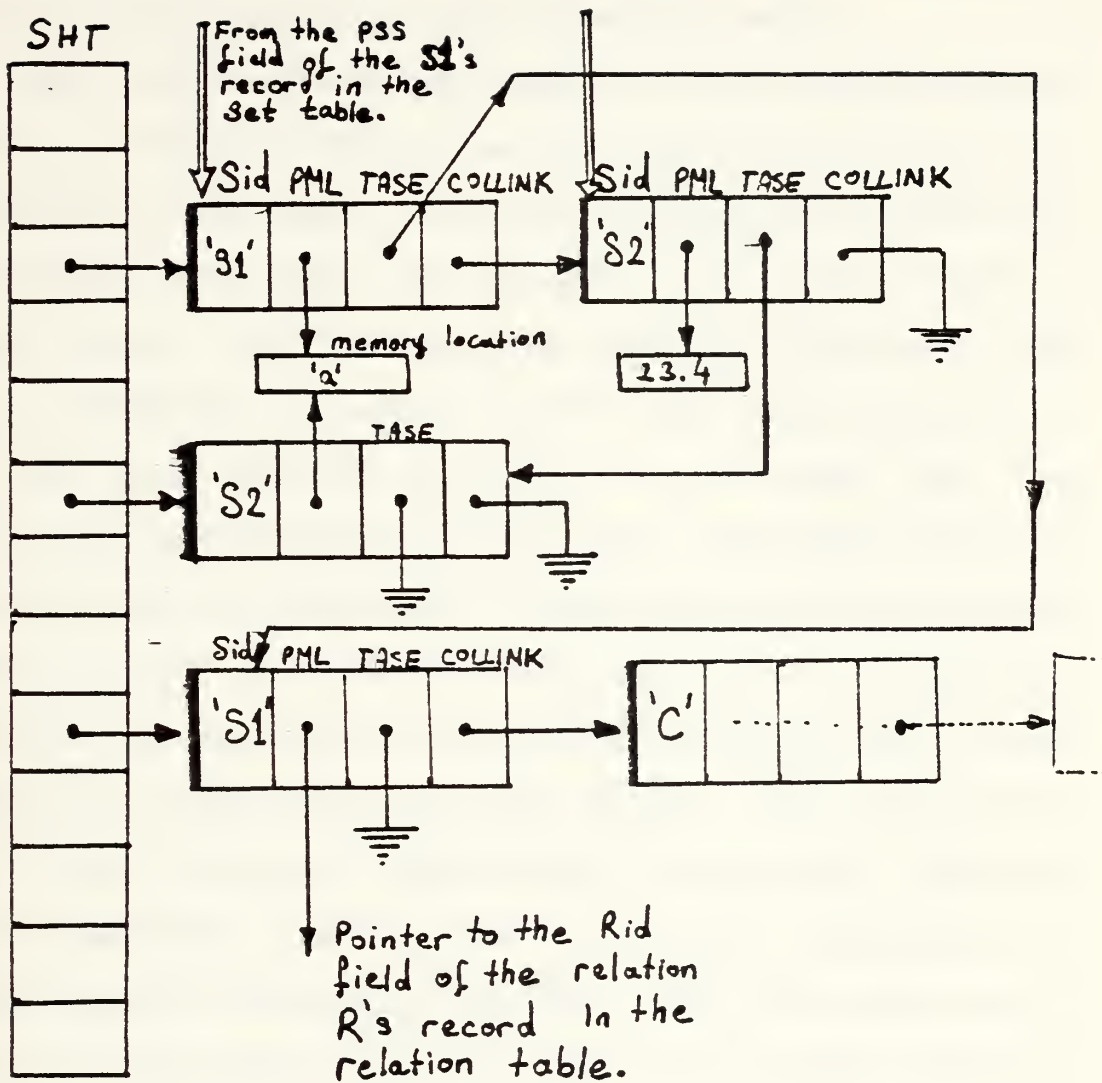 SHT
From the PSS
field of the S1's
record in the
Set table.
Sid PML TASE COLLINK
Sid PML TASE COLLINK
'S1'
'S2'
memory location
'a'
23.4
TASE
'S2'
Sid PML TASE COLLINK
'S1'
'C'
Pointer to the Rid
field of the relation
R's record In the
relation table.